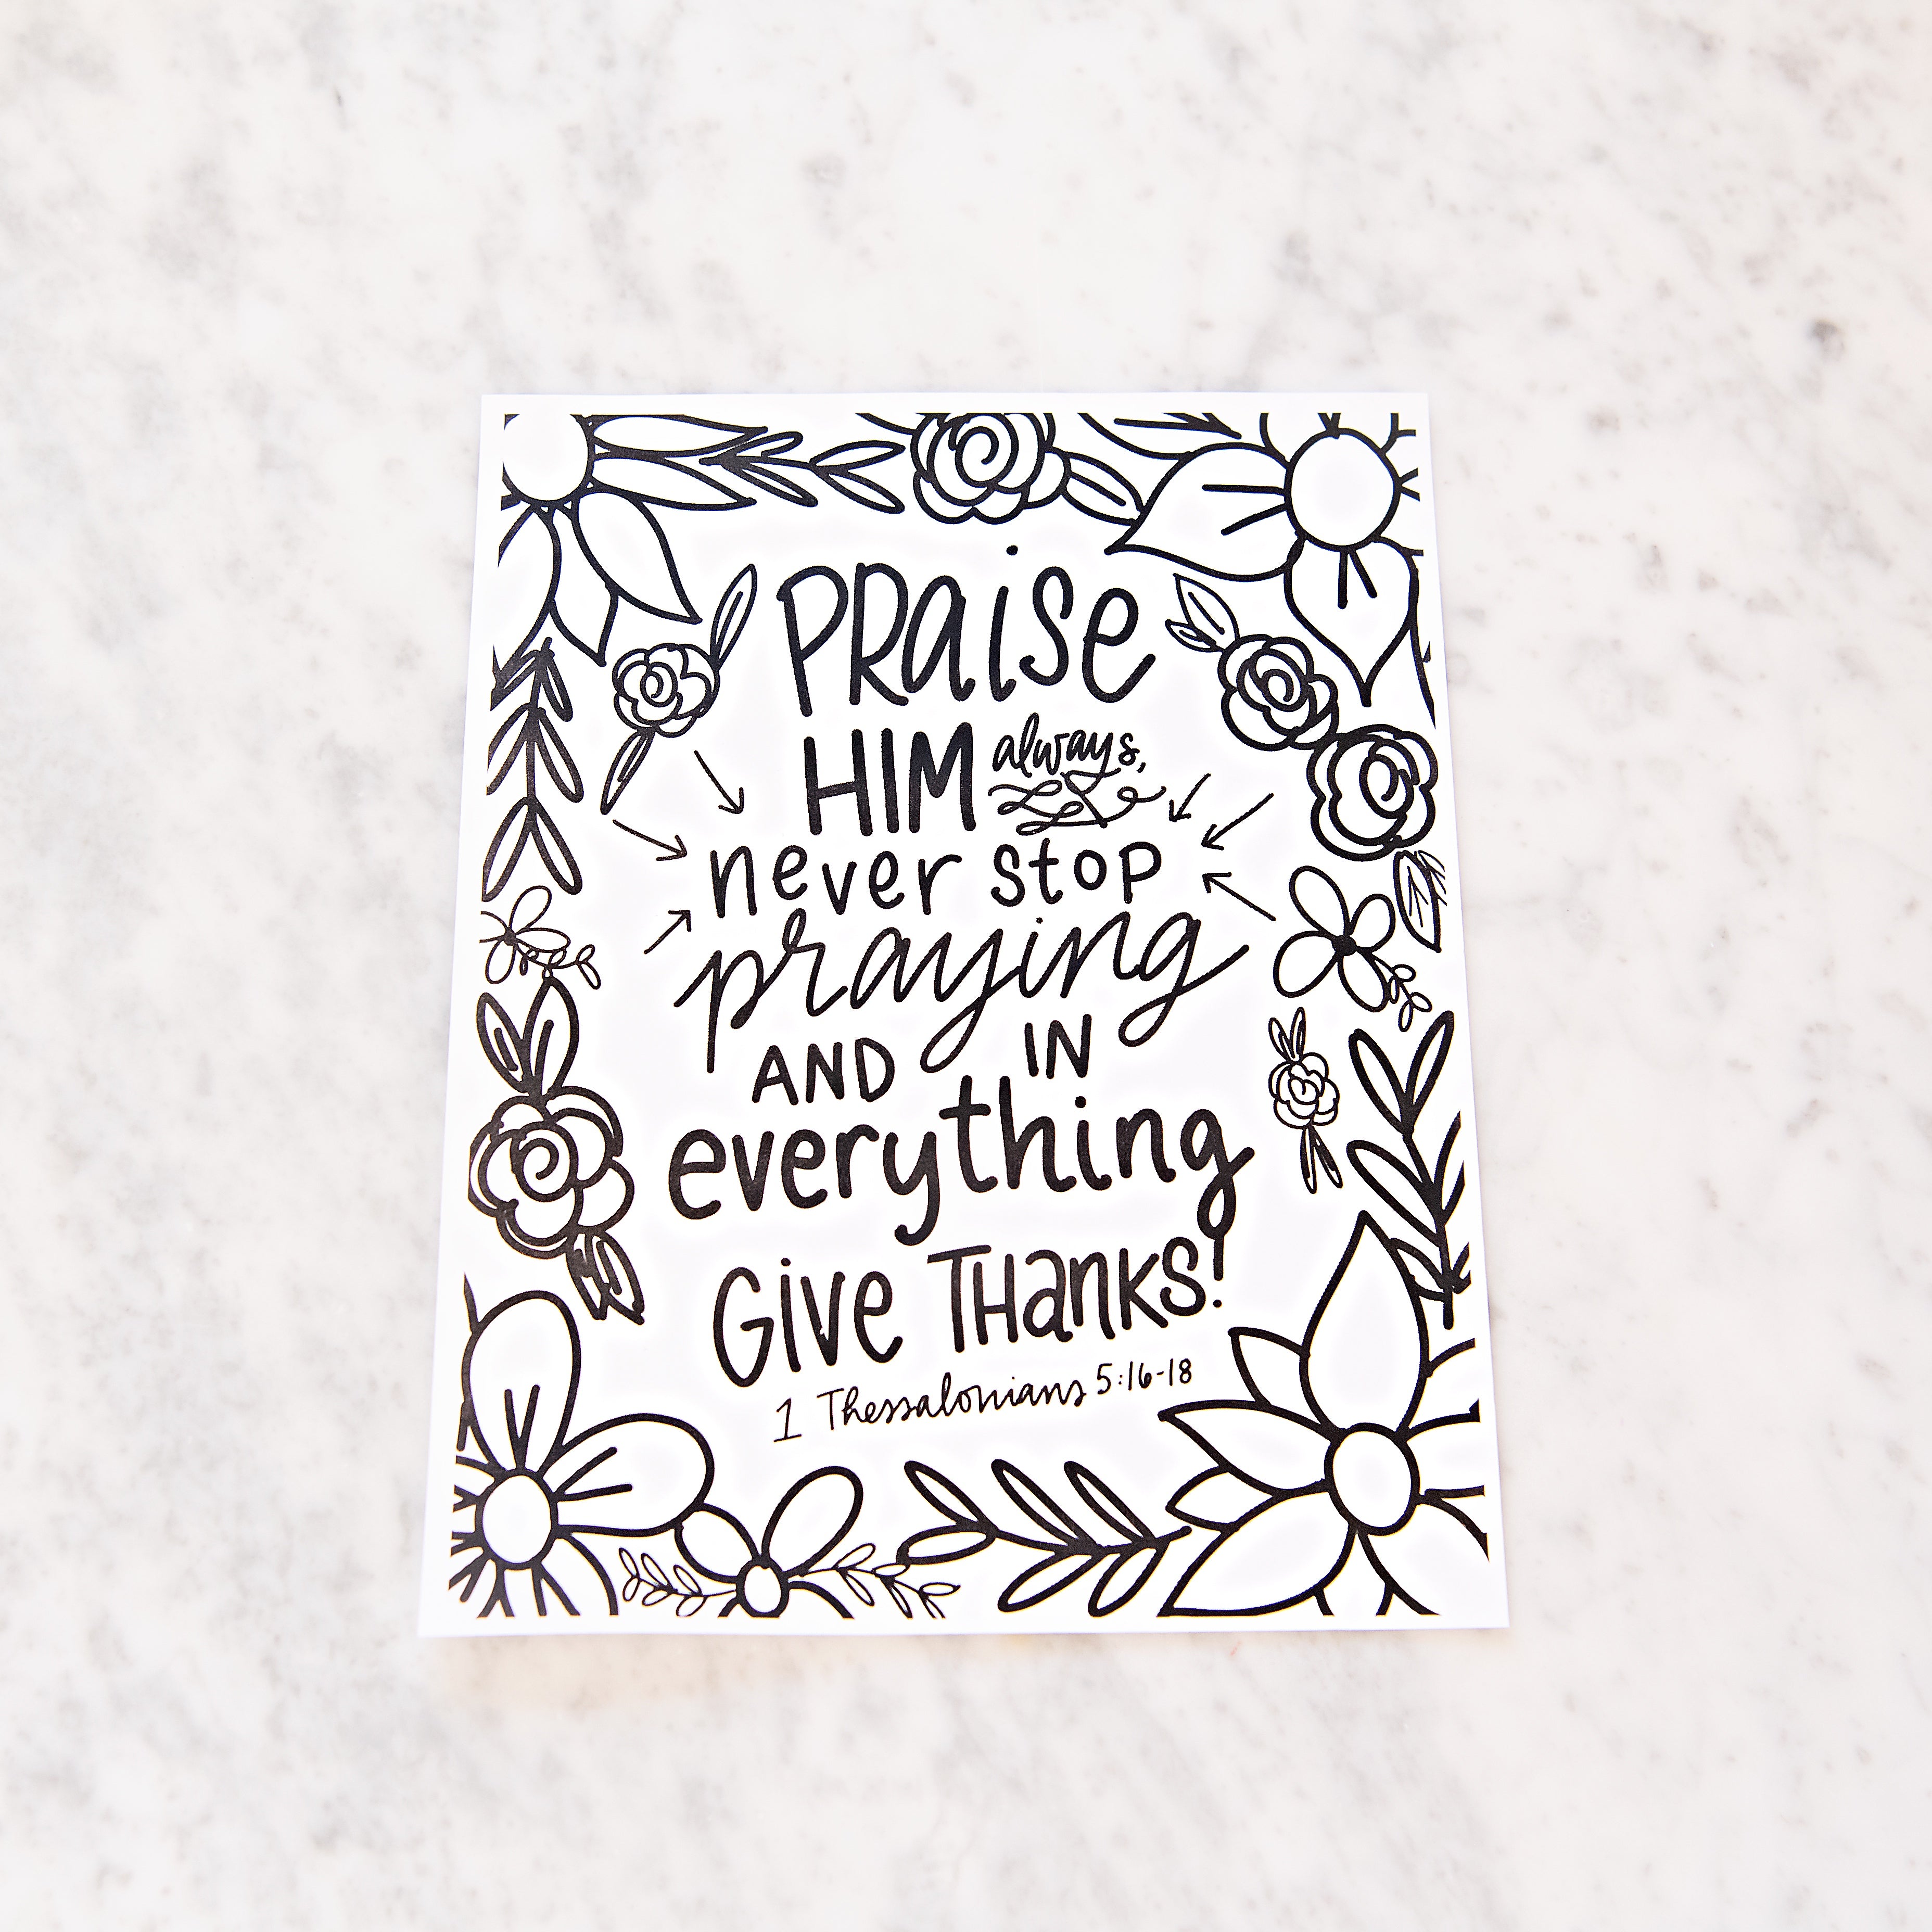 PRaiSe
HIM always,
never stop
praying
AND IN
everything
GivE THankS!
1 Thessalonians 5:16-18